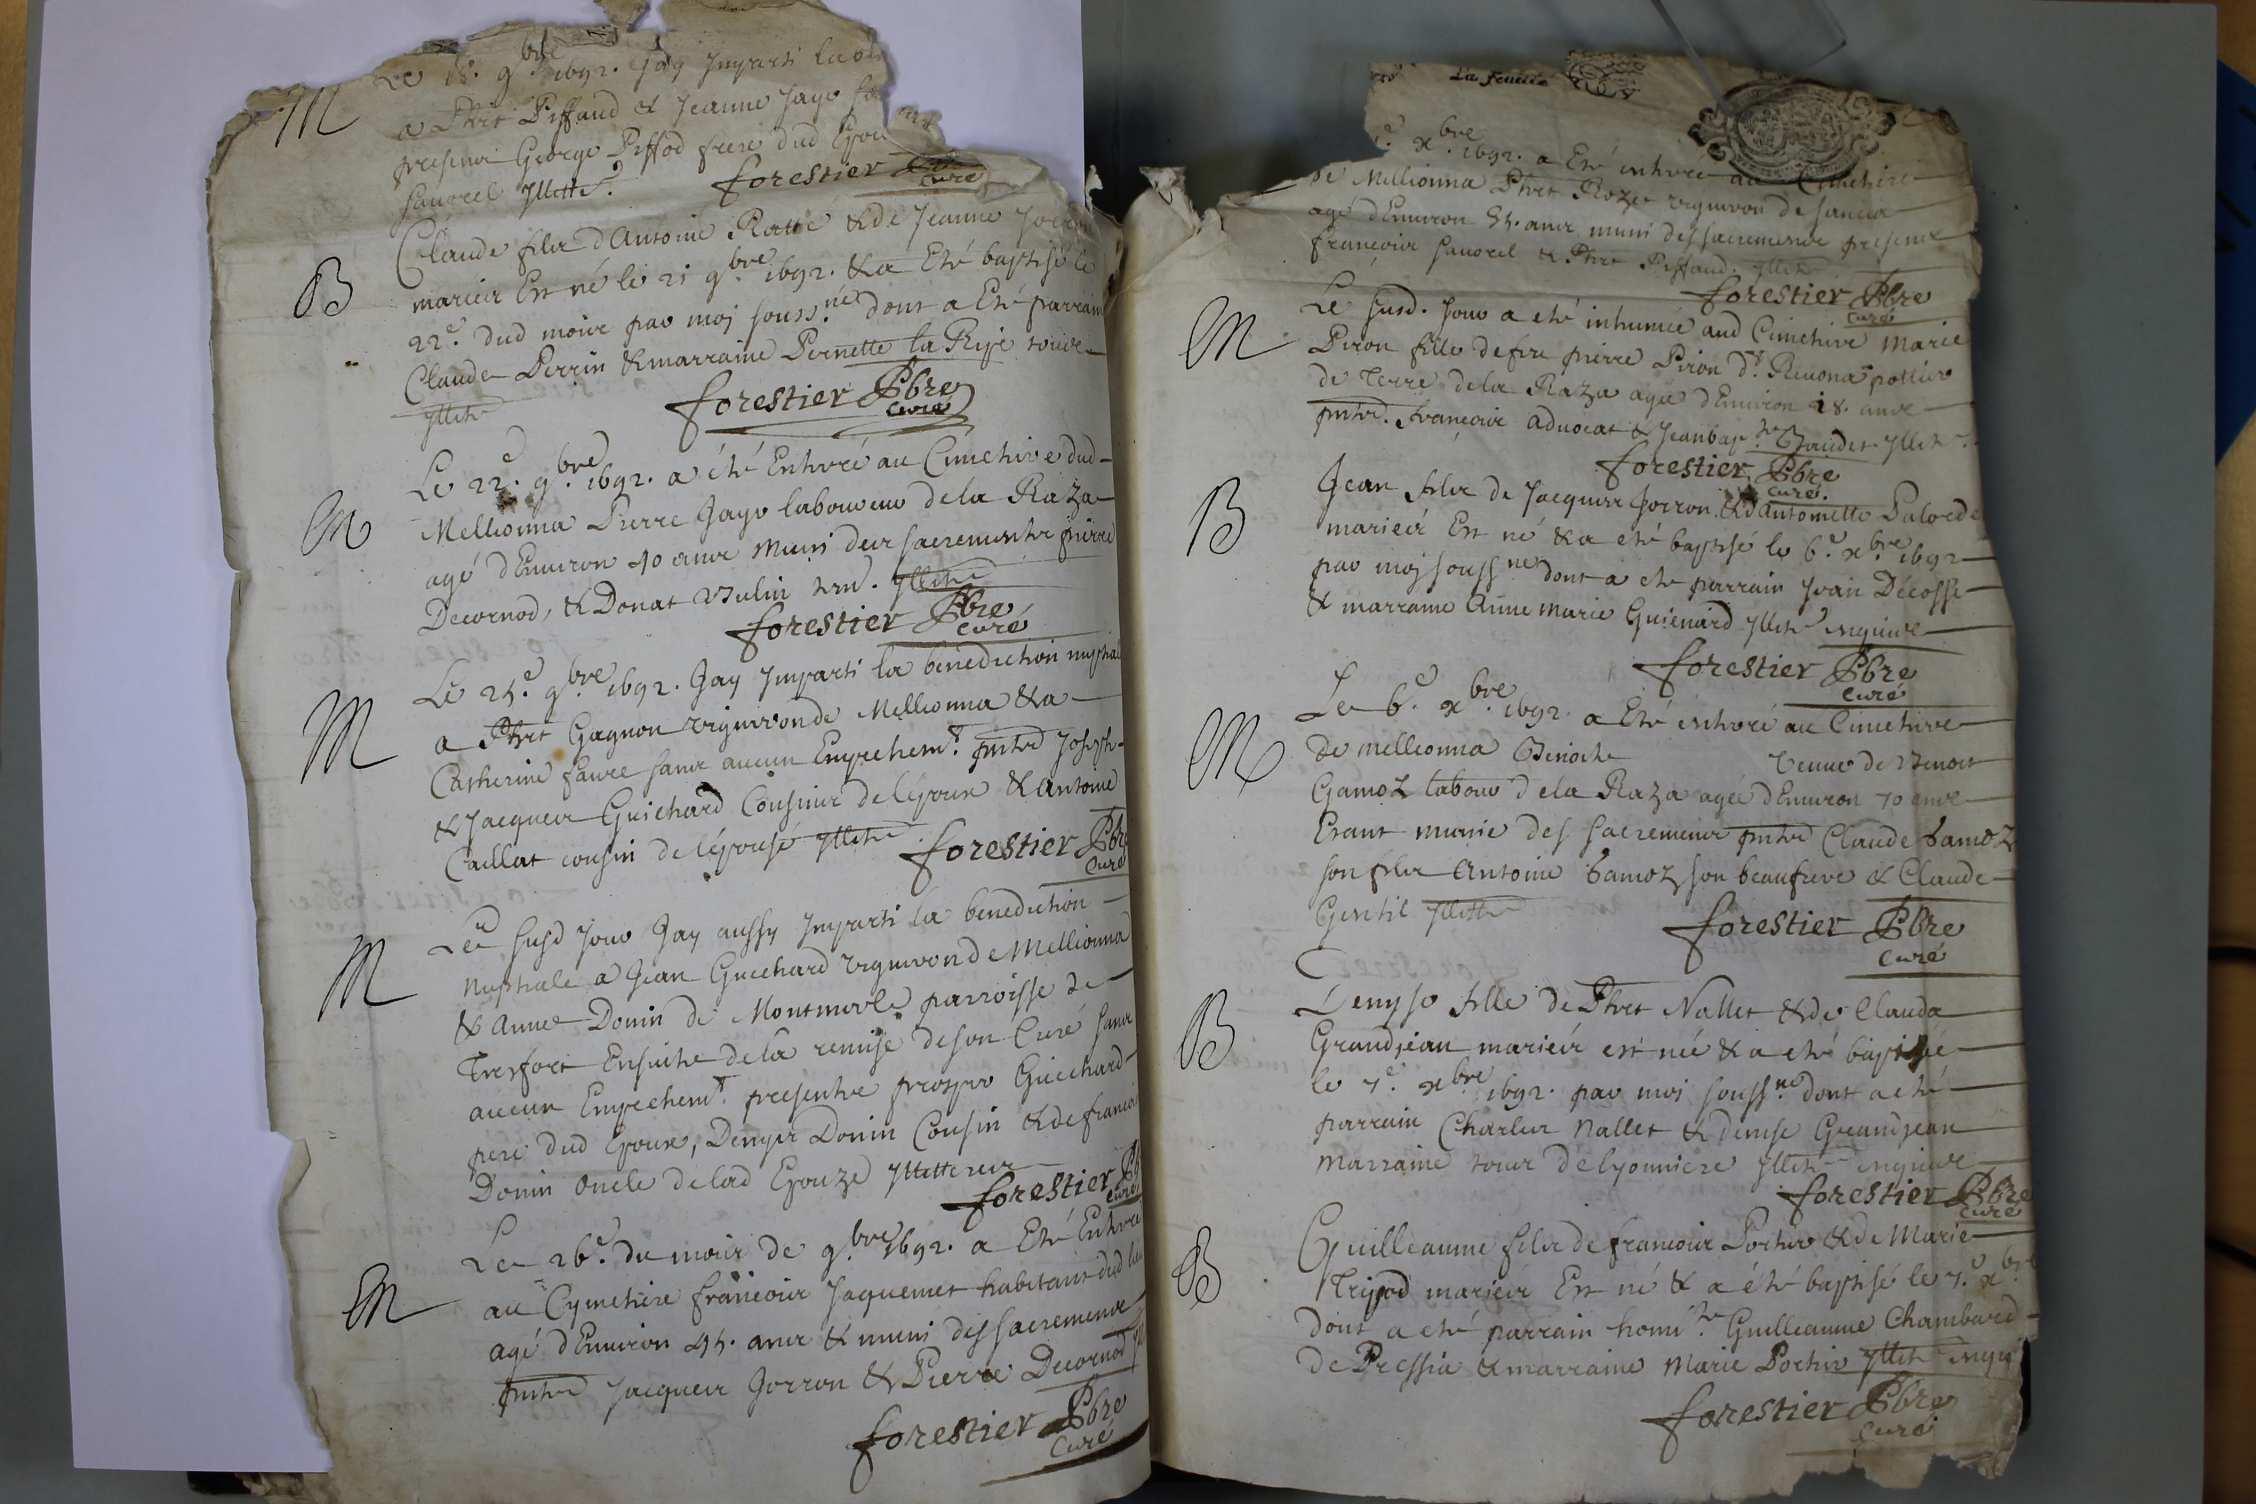 M
Le 18. 9.bre 1692. Jay Imparti la
a Phrt Piffaud & Jeanne Jayr
presence George Piffod frere dud
Sauvel Yllitte.
forestier
Curé
B
Claude filz d'Antoine Ratté & de Jeanne
mariez Est né le 21 9.bre 1692. & a Eté baptisé le
22.e dud moire par moj souss.né dont a Eté parrain
Claude Perrin & marraine Pernette la Rije
yllite
forestier Pbre
Curé
M
Le 22.e 9.bre 1692. a été Enterré au Cimetire dud
Mellionna Pierre Jayr laboureur de la Raza
agé d'Environ 40 anz Muni des sacrements pierre
Decornod, & Donat Vulin
forestier Pbre
Curé
M
Le 25.e 9.bre 1692. Jay Imparti la benediction nuptiale
a Phrt Gagnon vigneron de Mellionna & a
Catherine faure sanz aucun Empechem.t Joseph
& Jacquez Guichard Cousinz de l'époux & Antoine
Caillat cousin de l'épouse yllite
forestier Pbre
Curé
M
Le susd jour Jay aussy Imparti la benediction
Nuptiale a Jean Guichard vigneron de Mellionna
& Anne Donin de Montmerle parroisse de
Tresfort Ensuite de la remise de son Curé sanz
aucun Empechem.t presentz prosper Guichard
pere dud Epoux, Denyz Donin Cousin & de francoiz
Donin Oncle de lad Epouze
forestier
Curé
M
Le 26.e du moiz de 9.bre 1692. a Eté Enterré
au Cymetire francoiz Jaquemet habitant dud lieu
agé d'Environ 45. anz & muni des sacrementz
Jacquez Jorron & Pierre Decornod
forestier Pbre
Curé
La feuille
x.bre 1692. a Eté enterré au Cimetire
de Mellionna Phrt Roze vigneron de
agé d'Environ 35. anz muni des sacrementz presence
francoiz Sauvel & Phrt Piffaud. yllite
forestier Pbre
Curé
M
Le susd. jour a eté inhumée aud Cimetire Marie
Piron fille de feu pierre Piron d.t Reuona pottier
de Terre de la Raza agée d'Environ 18. anz
francoiz Advocat & Jean bap.te Gaudet yllite
forestier Pbre
Curé.
B
Jean filz de Jacquez Jorron & d'Antoinette
mariéz Est né & a eté baptisé le 6.e x.bre 1692
par moj souss.né dont a eté parrain Jean Décosse
& marraine Anne Marie Guienard yllite
forestier Pbre
Curé
M
Le 6.e x.bre 1692. a Eté enterré au Cimetire
de mellionna Benoite Veuve de Benoit
Gamoz labour de la Raza agée d'Environ 70 anz
Etant munie des sacrementz Claude Gamoz
son filz Antoine Gamoz son beaufrere & Claude
Gentil yllite
forestier Pbre
Curé
B
Denyse fille de Phrt Nallet & de Clauda
Grandjean mariéz est née & a eté baptisée
le 7.e x.bre 1692. par moi souss.né dont a eté
parrain Charlez Nallet & denise Grandjean
Marraine touz de lyonniere yllite
forestier Pbre
Curé
B
Guilleaume filz de francoiz Portier & de Marie
Tripod mariéz Est né & a été baptisé le 7.e x.bre
dont a eté parrain Guilleaume Chambard
de Pressia & marraine Marie Portier yllite
forestier Pbre
Curé